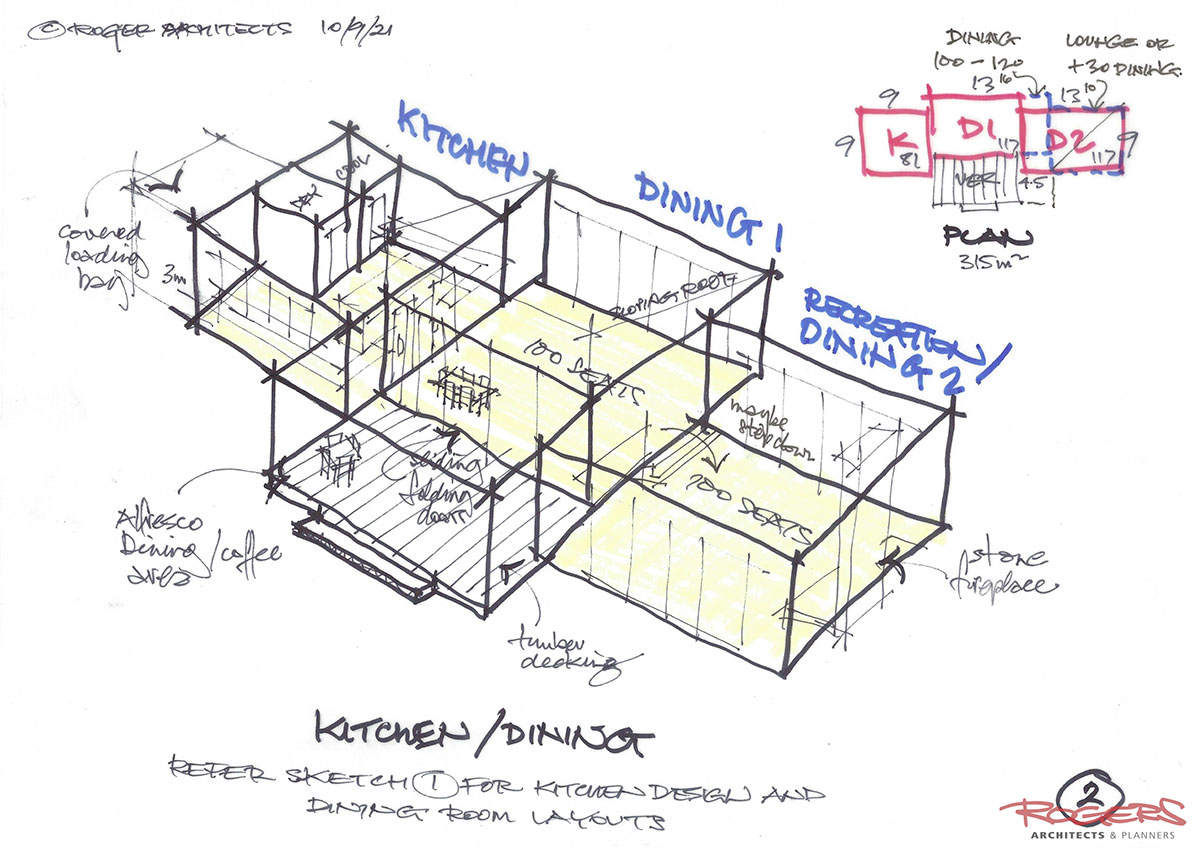 © ROGER ARCHITECTS 10/9/21
DINING
100 - 120
LOUNGE OR
+30 DINING
9
13
16
13
10
9
K
81
D1
117
D2
117
9
VER
4.5
PLAN
315m²
KITCHEN
DINING 1
RECREATION/
DINING 2
covered
loading
bay
3m
COOL
SLOPING ROOF
100 SEATS
maybe
step down
100 SEATS
sliding
folding
doors
Alfresco
Dining/coffee
area
stone
fireplace
timber
decking
KITCHEN/DINING
REFER SKETCH 1 FOR KITCHEN DESIGN AND
DINING ROOM LAYOUTS
2
ROGERS
ARCHITECTS & PLANNERS